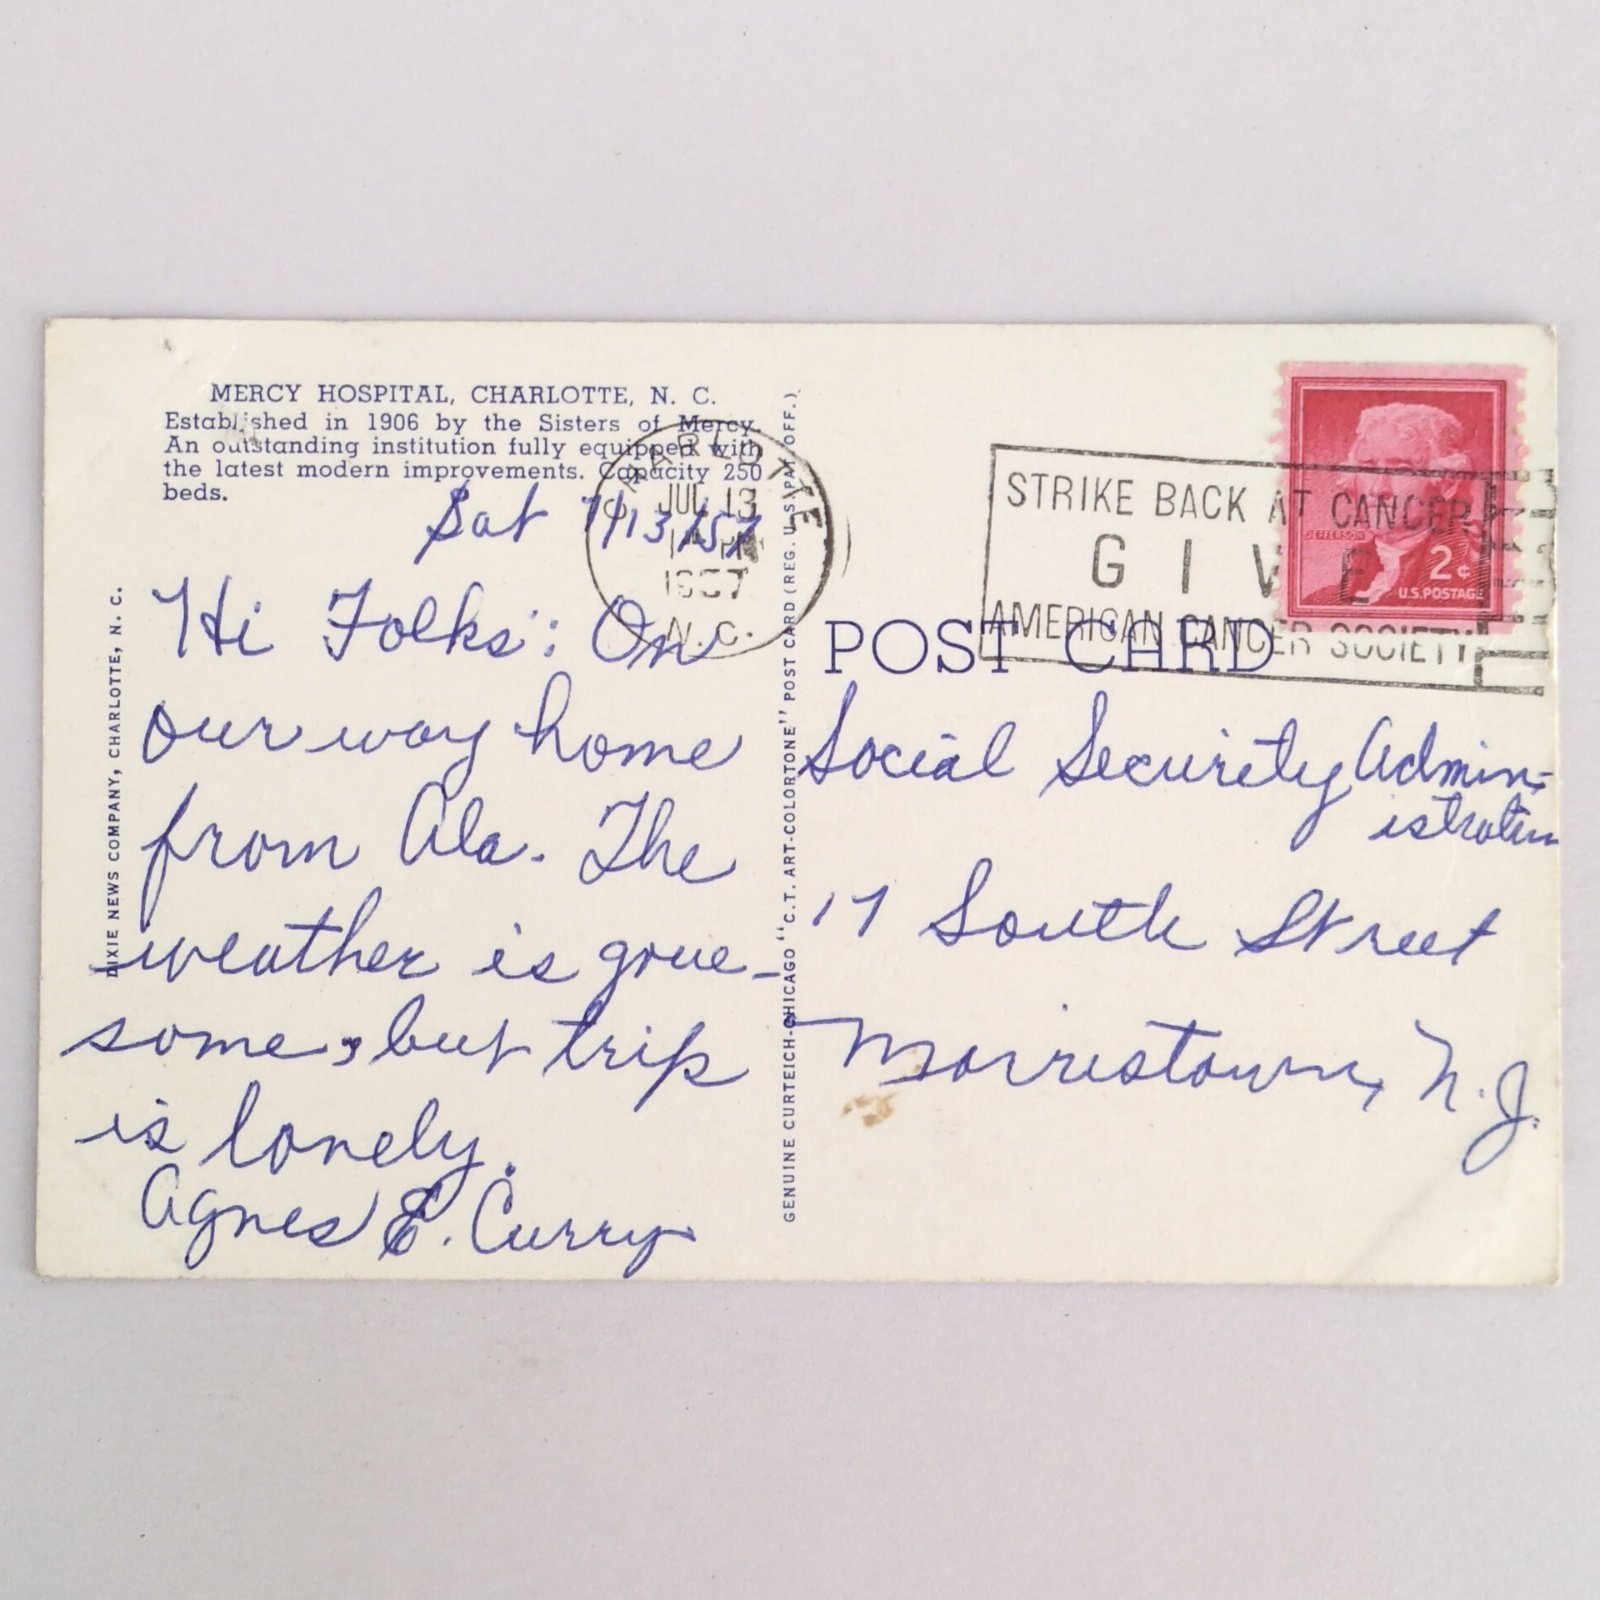 MERCY HOSPITAL, CHARLOTTE, N. C.
Established in 1906 by the Sisters of Mercy.
An outstanding institution fully equipped with
the latest modern improvements. Capacity 250
beds.
Sat 7/13/57
Hi Folks: On
our way home
from Ala. The
weather is grue-
some, but trip
is lonely.
Agnes E. Curry
DIXIE NEWS COMPANY, CHARLOTTE, N. C.
GENUINE CURTEICH-CHICAGO "C.T. ART-COLORTONE" POST CARD (REG. U.S. PAT. OFF.)
CHARLOTTE
JUL 13
PM
1957
N.C.
STRIKE BACK AT CANCER
GIVE
AMERICAN CANCER SOCIETY
JEFFERSON
2¢
U.S. POSTAGE
POST CARD
Social Security Admin-
istration
17 South Street
Morristown, N.J.